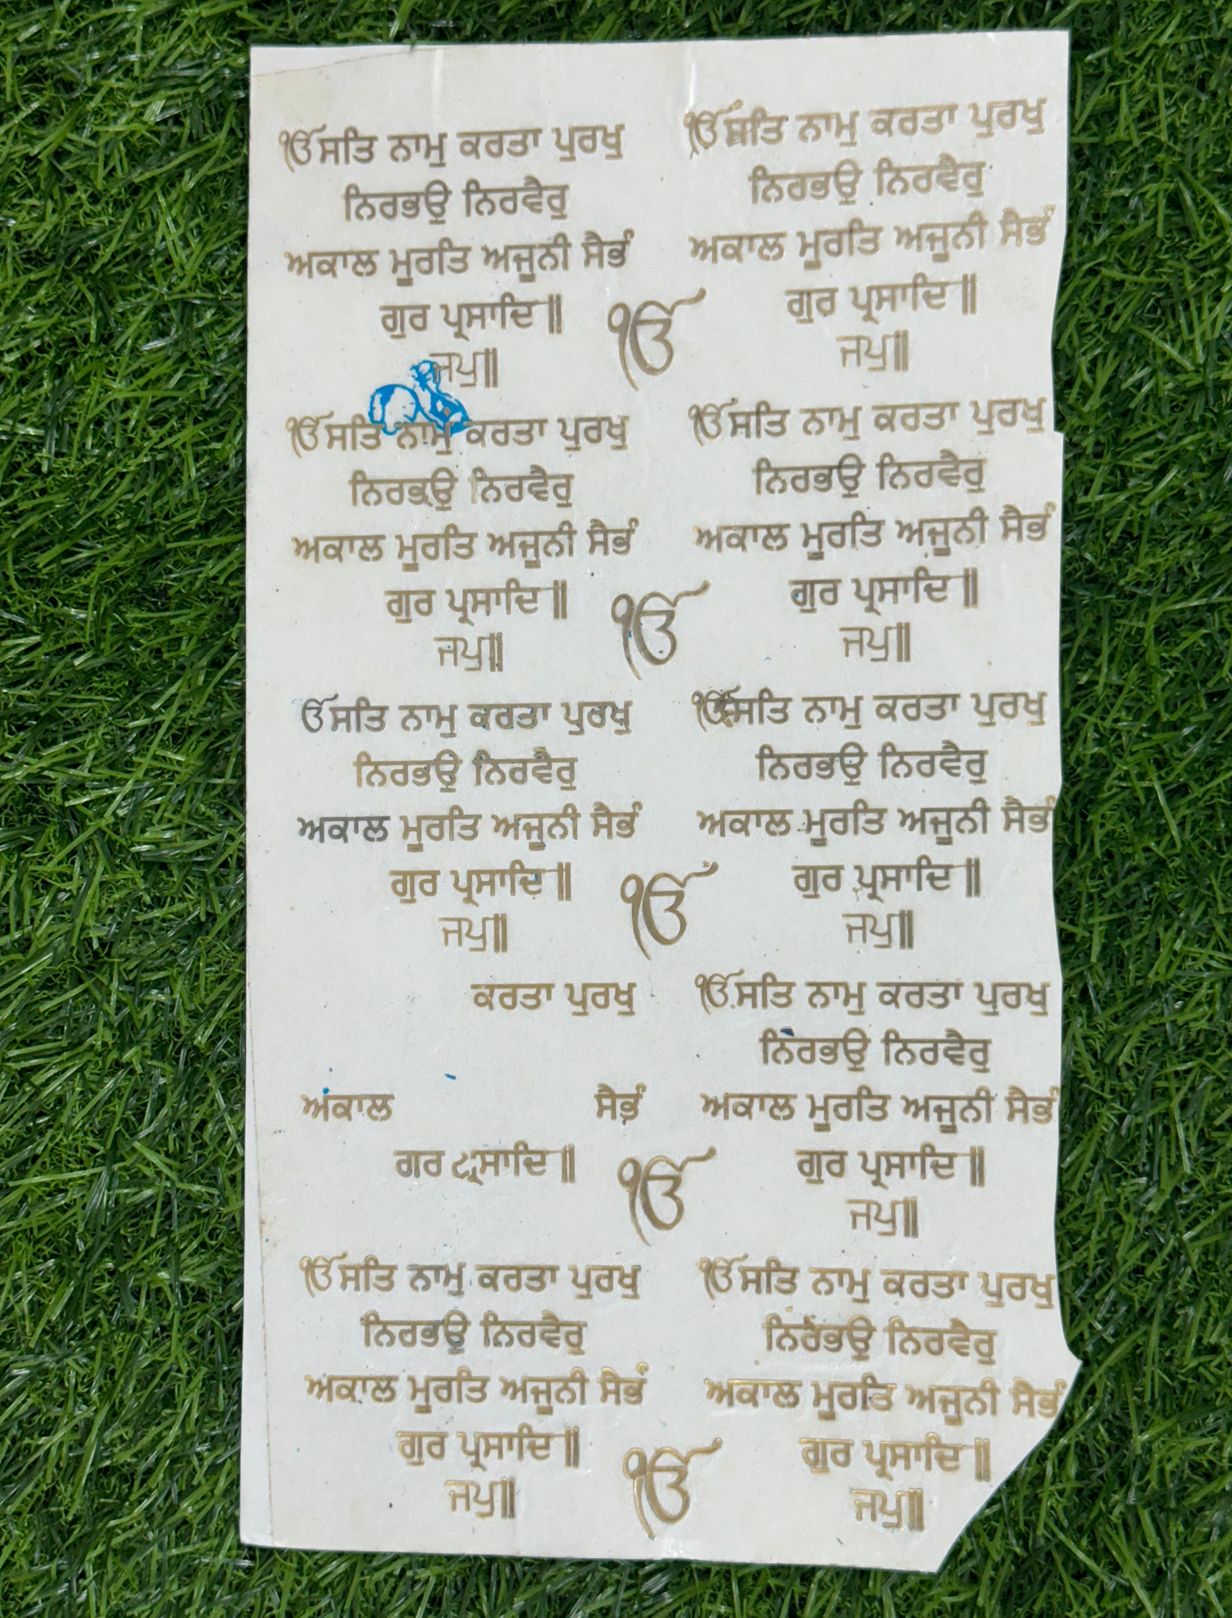 ੴ ਸਤਿ ਨਾਮੁ ਕਰਤਾ ਪੁਰਖੁ
ਨਿਰਭਉ ਨਿਰਵੈਰੁ
ਅਕਾਲ ਮੂਰਤਿ ਅਜੂਨੀ ਸੈਭੰ
ਗੁਰ ਪ੍ਰਸਾਦਿ ॥
ਜਪੁ ॥
ੴ ਸਤਿ ਨਾਮੁ ਕਰਤਾ ਪੁਰਖੁ
ਨਿਰਭਉ ਨਿਰਵੈਰੁ
ਅਕਾਲ ਮੂਰਤਿ ਅਜੂਨੀ ਸੈਭੰ
ਗੁਰ ਪ੍ਰਸਾਦਿ ॥
ਜਪੁ ॥
ੴ
ੴ ਸਤਿ ਨਾਮੁ ਕਰਤਾ ਪੁਰਖੁ
ਨਿਰਭਉ ਨਿਰਵੈਰੁ
ਅਕਾਲ ਮੂਰਤਿ ਅਜੂਨੀ ਸੈਭੰ
ਗੁਰ ਪ੍ਰਸਾਦਿ ॥
ਜਪੁ ॥
ੴ ਸਤਿ ਨਾਮੁ ਕਰਤਾ ਪੁਰਖੁ
ਨਿਰਭਉ ਨਿਰਵੈਰੁ
ਅਕਾਲ ਮੂਰਤਿ ਅਜੂਨੀ ਸੈਭੰ
ਗੁਰ ਪ੍ਰਸਾਦਿ ॥
ਜਪੁ ॥
ੴ
ਓ ਸਤਿ ਨਾਮੁ ਕਰਤਾ ਪੁਰਖੁ
ਨਿਰਭਉ ਨਿਰਵੈਰੁ
ਅਕਾਲ ਮੂਰਤਿ ਅਜੂਨੀ ਸੈਭੰ
ਗੁਰ ਪ੍ਰਸਾਦਿ ॥
ਜਪੁ ॥
ੴ ਸਤਿ ਨਾਮੁ ਕਰਤਾ ਪੁਰਖੁ
ਨਿਰਭਉ ਨਿਰਵੈਰੁ
ਅਕਾਲ ਮੂਰਤਿ ਅਜੂਨੀ ਸੈਭੰ
ਗੁਰ ਪ੍ਰਸਾਦਿ ॥
ਜਪੁ ॥
ੴ
ਕਰਤਾ ਪੁਰਖੁ
ਅਕਾਲ ਸੈਭੰ
ਗਰ ॥
ੴ ਸਤਿ ਨਾਮੁ ਕਰਤਾ ਪੁਰਖੁ
ਨਿਰਭਉ ਨਿਰਵੈਰੁ
ਅਕਾਲ ਮੂਰਤਿ ਅਜੂਨੀ ਸੈਭੰ
ਗੁਰ ਪ੍ਰਸਾਦਿ ॥
ਜਪੁ ॥
ੴ
ੴ ਸਤਿ ਨਾਮੁ ਕਰਤਾ ਪੁਰਖੁ
ਨਿਰਭਉ ਨਿਰਵੈਰੁ
ਅਕਾਲ ਮੂਰਤਿ ਅਜੂਨੀ ਸੈਭੰ
ਗੁਰ ਪ੍ਰਸਾਦਿ ॥
ਜਪੁ ॥
ੴ ਸਤਿ ਨਾਮੁ ਕਰਤਾ ਪੁਰਖੁ
ਨਿਰਭਉ ਨਿਰਵੈਰੁ
ਅਕਾਲ ਮੂਰਤਿ ਅਜੂਨੀ ਸੈਭੰ
ਗੁਰ ਪ੍ਰਸਾਦਿ ॥
ਜਪੁ ॥
ੴ